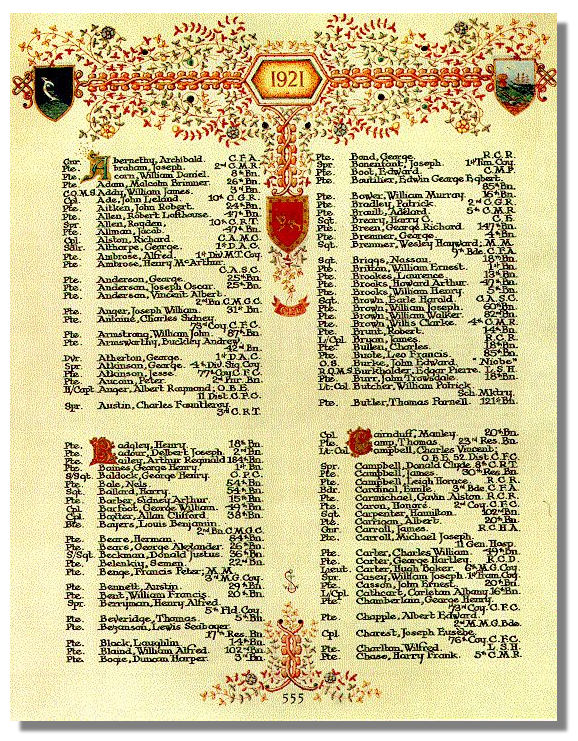 1921
Gnr. Abernethy, Archibald. C.F.A.
Pte. Abraham, Joseph. 2nd C.M.R.
Pte. Acorn, William Daniel. 8th Bn.
Pte. Adam, Malcolm Brimner. 26th Bn.
C.Q.M.S. Addy, William James. 3rd Bn.
Cpl. Ade, John Leland. 10th C.G.R.
Pte. Aitken, John Robert. 24th Bn.
Pte. Allen, Robert Lofthouse. 47th Bn.
Spr. Allen, Royden. 10th C.R.T.
Pte. Allman, Jacob. 47th Bn.
Cpl. Alston, Richard. C.A.M.C.
Sdlr. Althorpe, George. 1st D.A.C.
Pte. Ambrose, Alfred. 1st Div. M.T. Coy.
Pte. Ambrose, Henry McArthur.
C.A.S.C.
Pte. Anderson, George. 25th Bn.
Pte. Anderson, Joseph Oscar. 25th Bn.
Pte. Anderson, Vincent Albert.
2nd Bn. C.M.G.C.
Pte. Anger, Joseph William. 31st Bn.
Pte. Antoine, Charles Sidney.
73rd Coy. C.F.C.
Pte. Armstrong, William John. 87th Bn.
Pte. Armsworthy, Buckley Andrew.
2nd Bn.
Dvr. Atherton, George. 1st D.A.C.
Spr. Atkinson, George. 4th Div. Sig. Coy.
Pte. Atkinson, Jesse. 77th Coy. C.F.C.
Pte. Aucoin, Peter. 2nd Pnr. Bn.
H/Capt. Auger, Albert Raymond, O.B.E.
11 Dist. C.F.C.
Spr. Austin, Charles Fauntleroy.
3rd C.R.T.
Pte. Badgley, Henry. 18th Bn.
Pte. Badour, Delbert Joseph. 2nd Bn.
Pte. Bailey, Arthur Reginald. 184th Bn.
Pte. Baines, George Henry. 1st Bn.
S/Sgt. Baldock, George Henry. C.P.C.
Pte. Bale, Nels. 54th Bn.
Sgt. Ballard, Harry. 54th Bn.
Pte. Barber, Sidney Arthur. 115th Bn.
Cpl. Barfoot, George William. 49th Bn.
Cpl. Baxter, Allan Clifford. 38th Bn.
Pte. Banyers, Louis Benjamin.
2nd Bn. C.M.G.C.
Pte. Beare, Herman. 64th Bn.
Pte. Beare, George Alexander. 26th Bn.
S/Sgt. Beckman, Donald Justus. 36th Bn.
Pte. Belenkiy, Semen. 22nd Bn.
Pte. Benge, Francis Peter, M.M.
3rd M.G. Coy.
Pte. Bennett, Austin. 29th Bn.
Pte. Bent, William Francis. 20th Bn.
Spr. Berryman, Henry Alfred.
5th Fld. Coy.
Pte. Beveridge, Thomas. 5th Bn.
Pte. Beyanson, Lewis Seaboyer.
17th Res. Bn.
Pte. Black, Laughlin. 14th Bn.
Pte. Blaind, William Alfred. 102nd Bn.
Pte. Bogie, Duncan Harper. 3rd Bn.
Pte. Bond, George. R.C.R.
Spr. Bonenfant, Joseph. 1st Tun. Coy.
Pte. Boot, Edward. C.M.P.
Pte. Boutilier, Edwin George Egbert.
85th Bn.
Pte. Bower, William Murray. 16th Bn.
Pte. Bradley, Patrick. 2nd C.G.R.
Pte. Brailt, Adélard. 5th C.M.R.
Sgt. Breary, Harry C. C.E.
Pte. Breen, George Richard. 147th Bn.
Pte. Bremner, George. 4th Bn.
Sgt. Bremner, Wesley Hayward, M.M.
9th Bde. C.F.A.
Sgt. Briggs, Nassau. 18th Bn.
Pte. Britton, William Ernest. 1st Bn.
Pte. Brookes, Laurence. 13th Bn.
Pte. Brooks, Howard Arthur. 47th Bn.
Pte. Brooks, William Henry. 5th Bn.
Sgt. Brown, Earle Harold. C.A.S.C.
Pte. Brown, William Joseph. 60th Bn.
Pte. Brown, William Walker. 82nd Bn.
Pte. Brown, Willis Clarke. 4th C.M.R.
Pte. Brunt, Robert. 14th Bn.
L/Cpl. Bryan, James. R.C.R.
Pte. Bullen, Charles. 18th Bn.
Pte. Buote, Leo Francis. 85th Bn.
O.S. Burke, John Edward. "Niobe"
R.Q.M.S. Burkholder, Edgar Pierre. L.S.H.
Pte. Burr, John Trowsdale. 18th Bn.
Lt.-Col. Butcher, William Patrick.
Sch. Mktry.
Pte. Butler, Thomas Parnell. 121st Bn.
Cpl. Cairnduff, Manley. 20th Bn.
Pte. Camp, Thomas. 23rd Res. Bn.
Lt.-Col. Campbell, Charles Vincent;
O.B.E. 52 Dist. C.F.C.
Spr. Campbell, Donald Clyde. 8th C.R.T.
Pte. Campbell, James. 30th Res. Bn.
Pte. Campbell, Leigh Horace. R.C.R.
Bdr. Cardinal, Emile. 3rd Bde. C.F.A.
Pte. Carmichael, Gavin Alston. R.C.R.
Pte. Caron, Honoré. 2nd Coy. C.F.C.
Sgt. Carpenter, Hamilton. 102nd Bn.
Pte. Carrigan, Albert. 20th Bn.
Gnr. Carroll, James. R.C.H.A.
Pte. Carroll, Michael Joseph.
11 Gen. Hosp.
Pte. Carter, Charles William. 49th Bn.
Pte. Carter, George Hartley. R.C.D.
Lieut. Carter, Hugh Doker. 6th M.G. Coy.
Spr. Casey, William Joseph. 1st Tram. Coy.
Pte. Casson, John Ernest. 20th Bn.
L/Cpl. Cathcart, Carleton Albany. 16th Bn.
Pte. Chamberlain, George Henry.
73rd Coy. C.F.C.
Pte. Chapple, Albert Edward.
2nd M.M.G. Bde.
Cpl. Charest, Joseph Eusèbe.
76th Coy. C.F.C.
Pte. Charlton, Wilfred. L.S.H.
Pte. Chase, Harry Frank. 5th C.M.R.
555